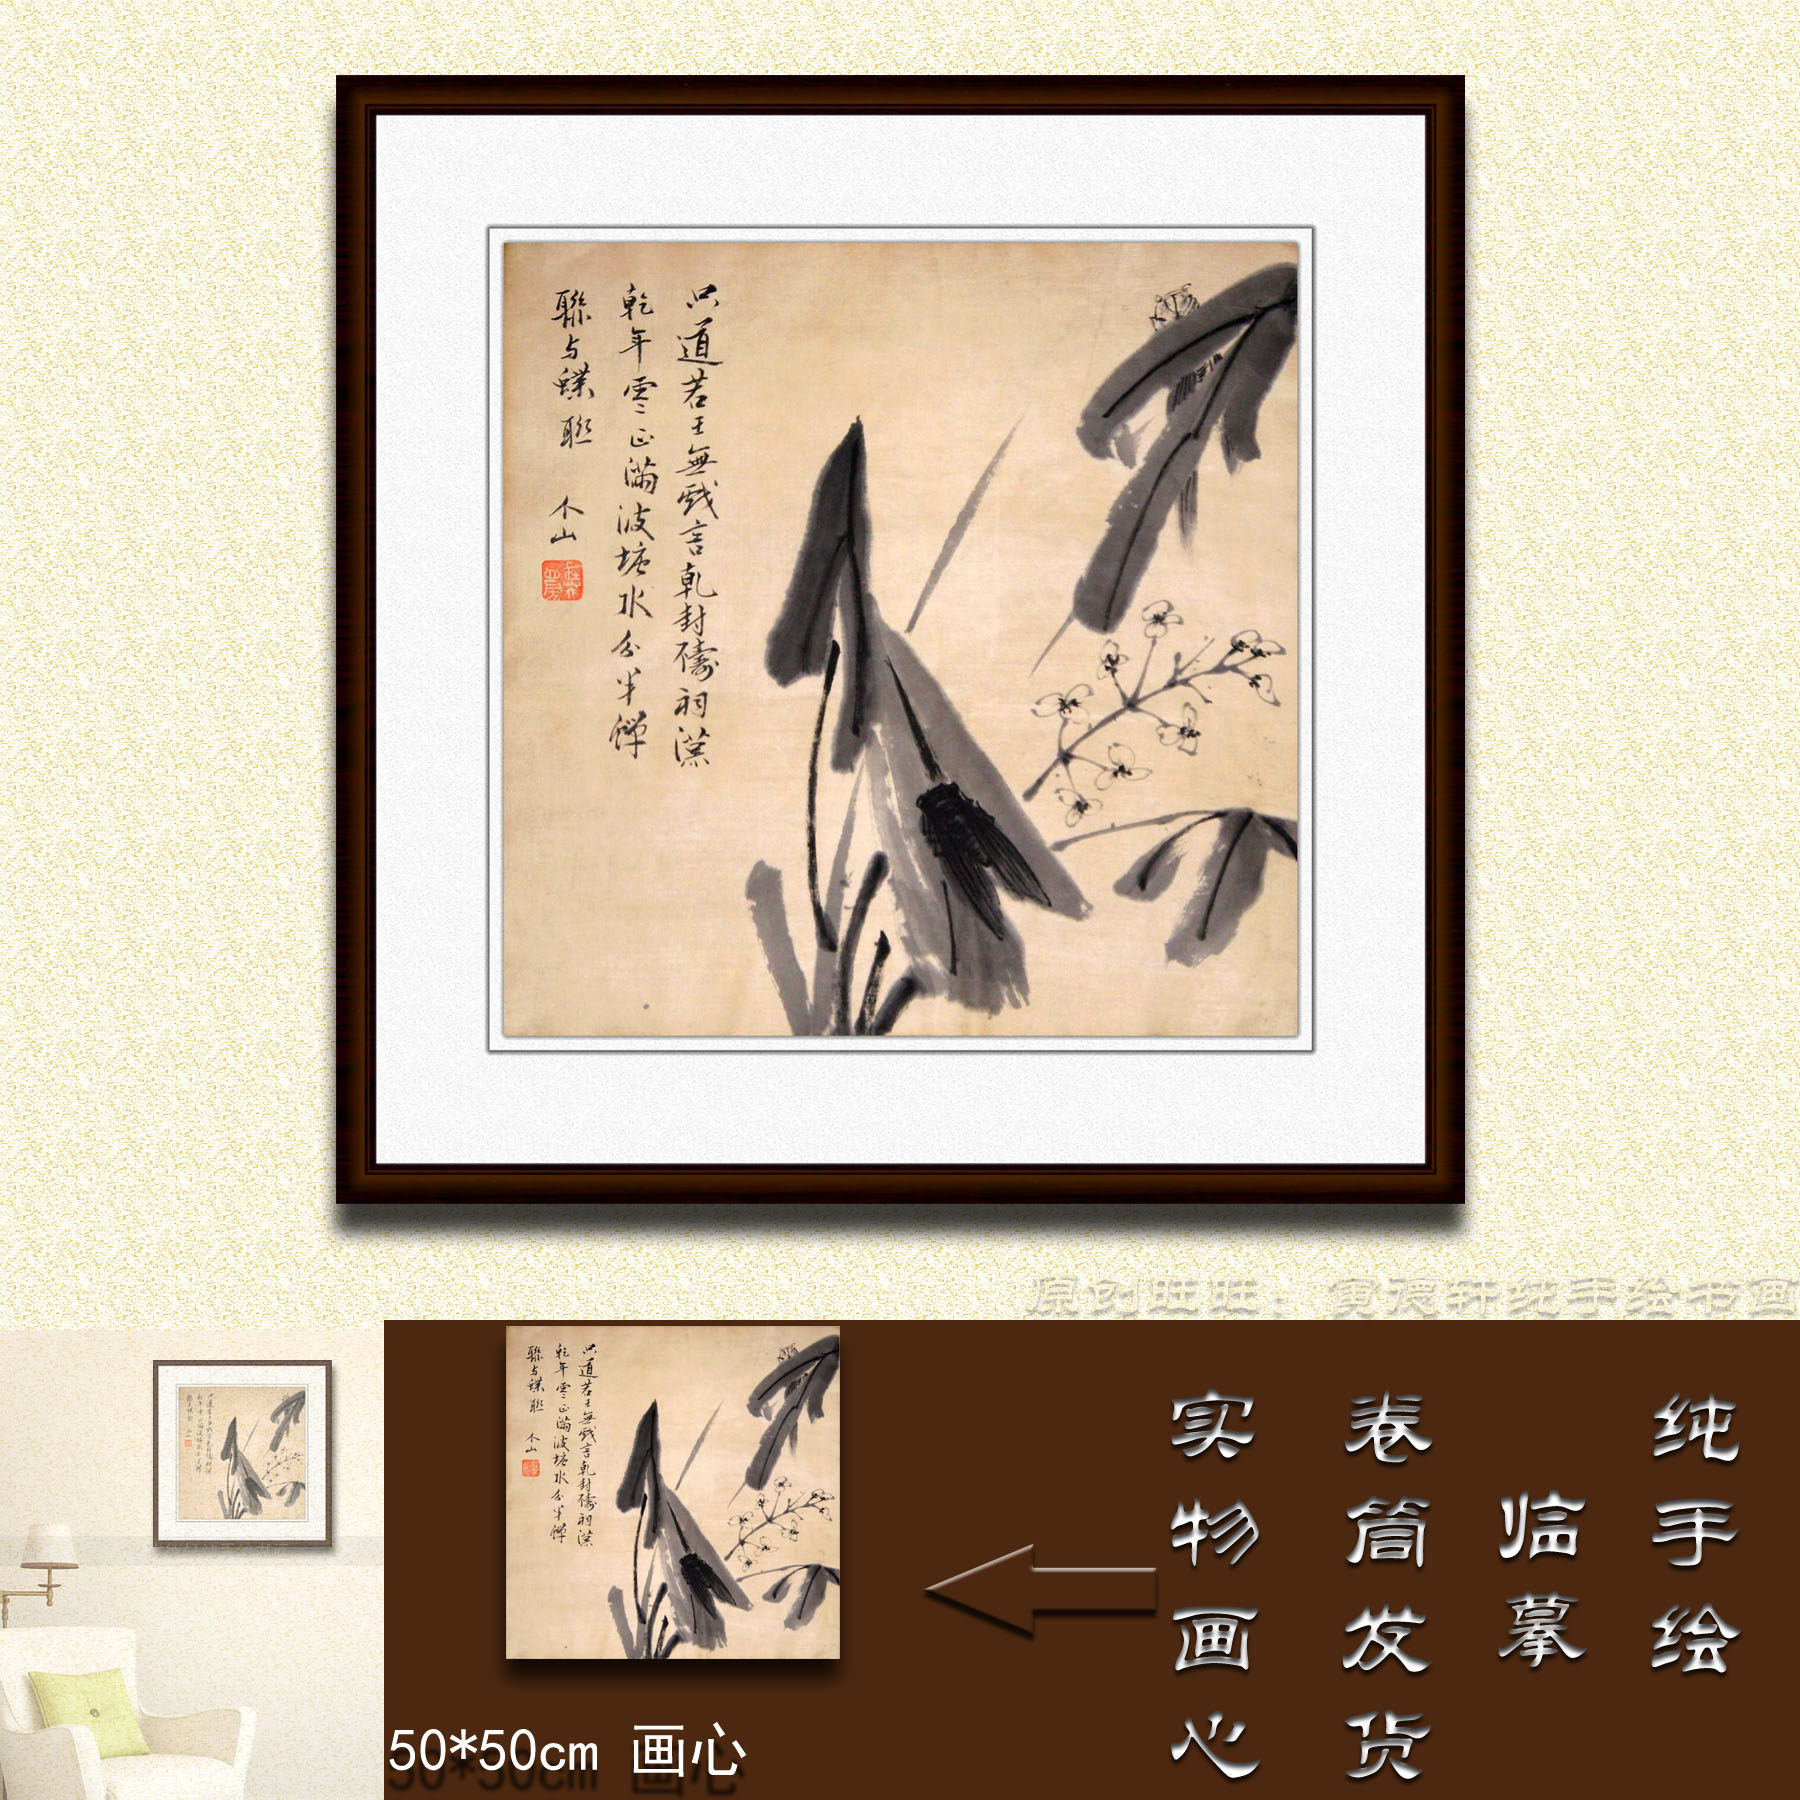 只道若王無戲言乾封禱祠漢
乾年雲正滿波塘水分半蟬
聯与蝶聯
个山
原创旺旺：寅德轩纯手绘书画
纯手绘
临摹
卷筒发货
实物画心
50*50cm 画心